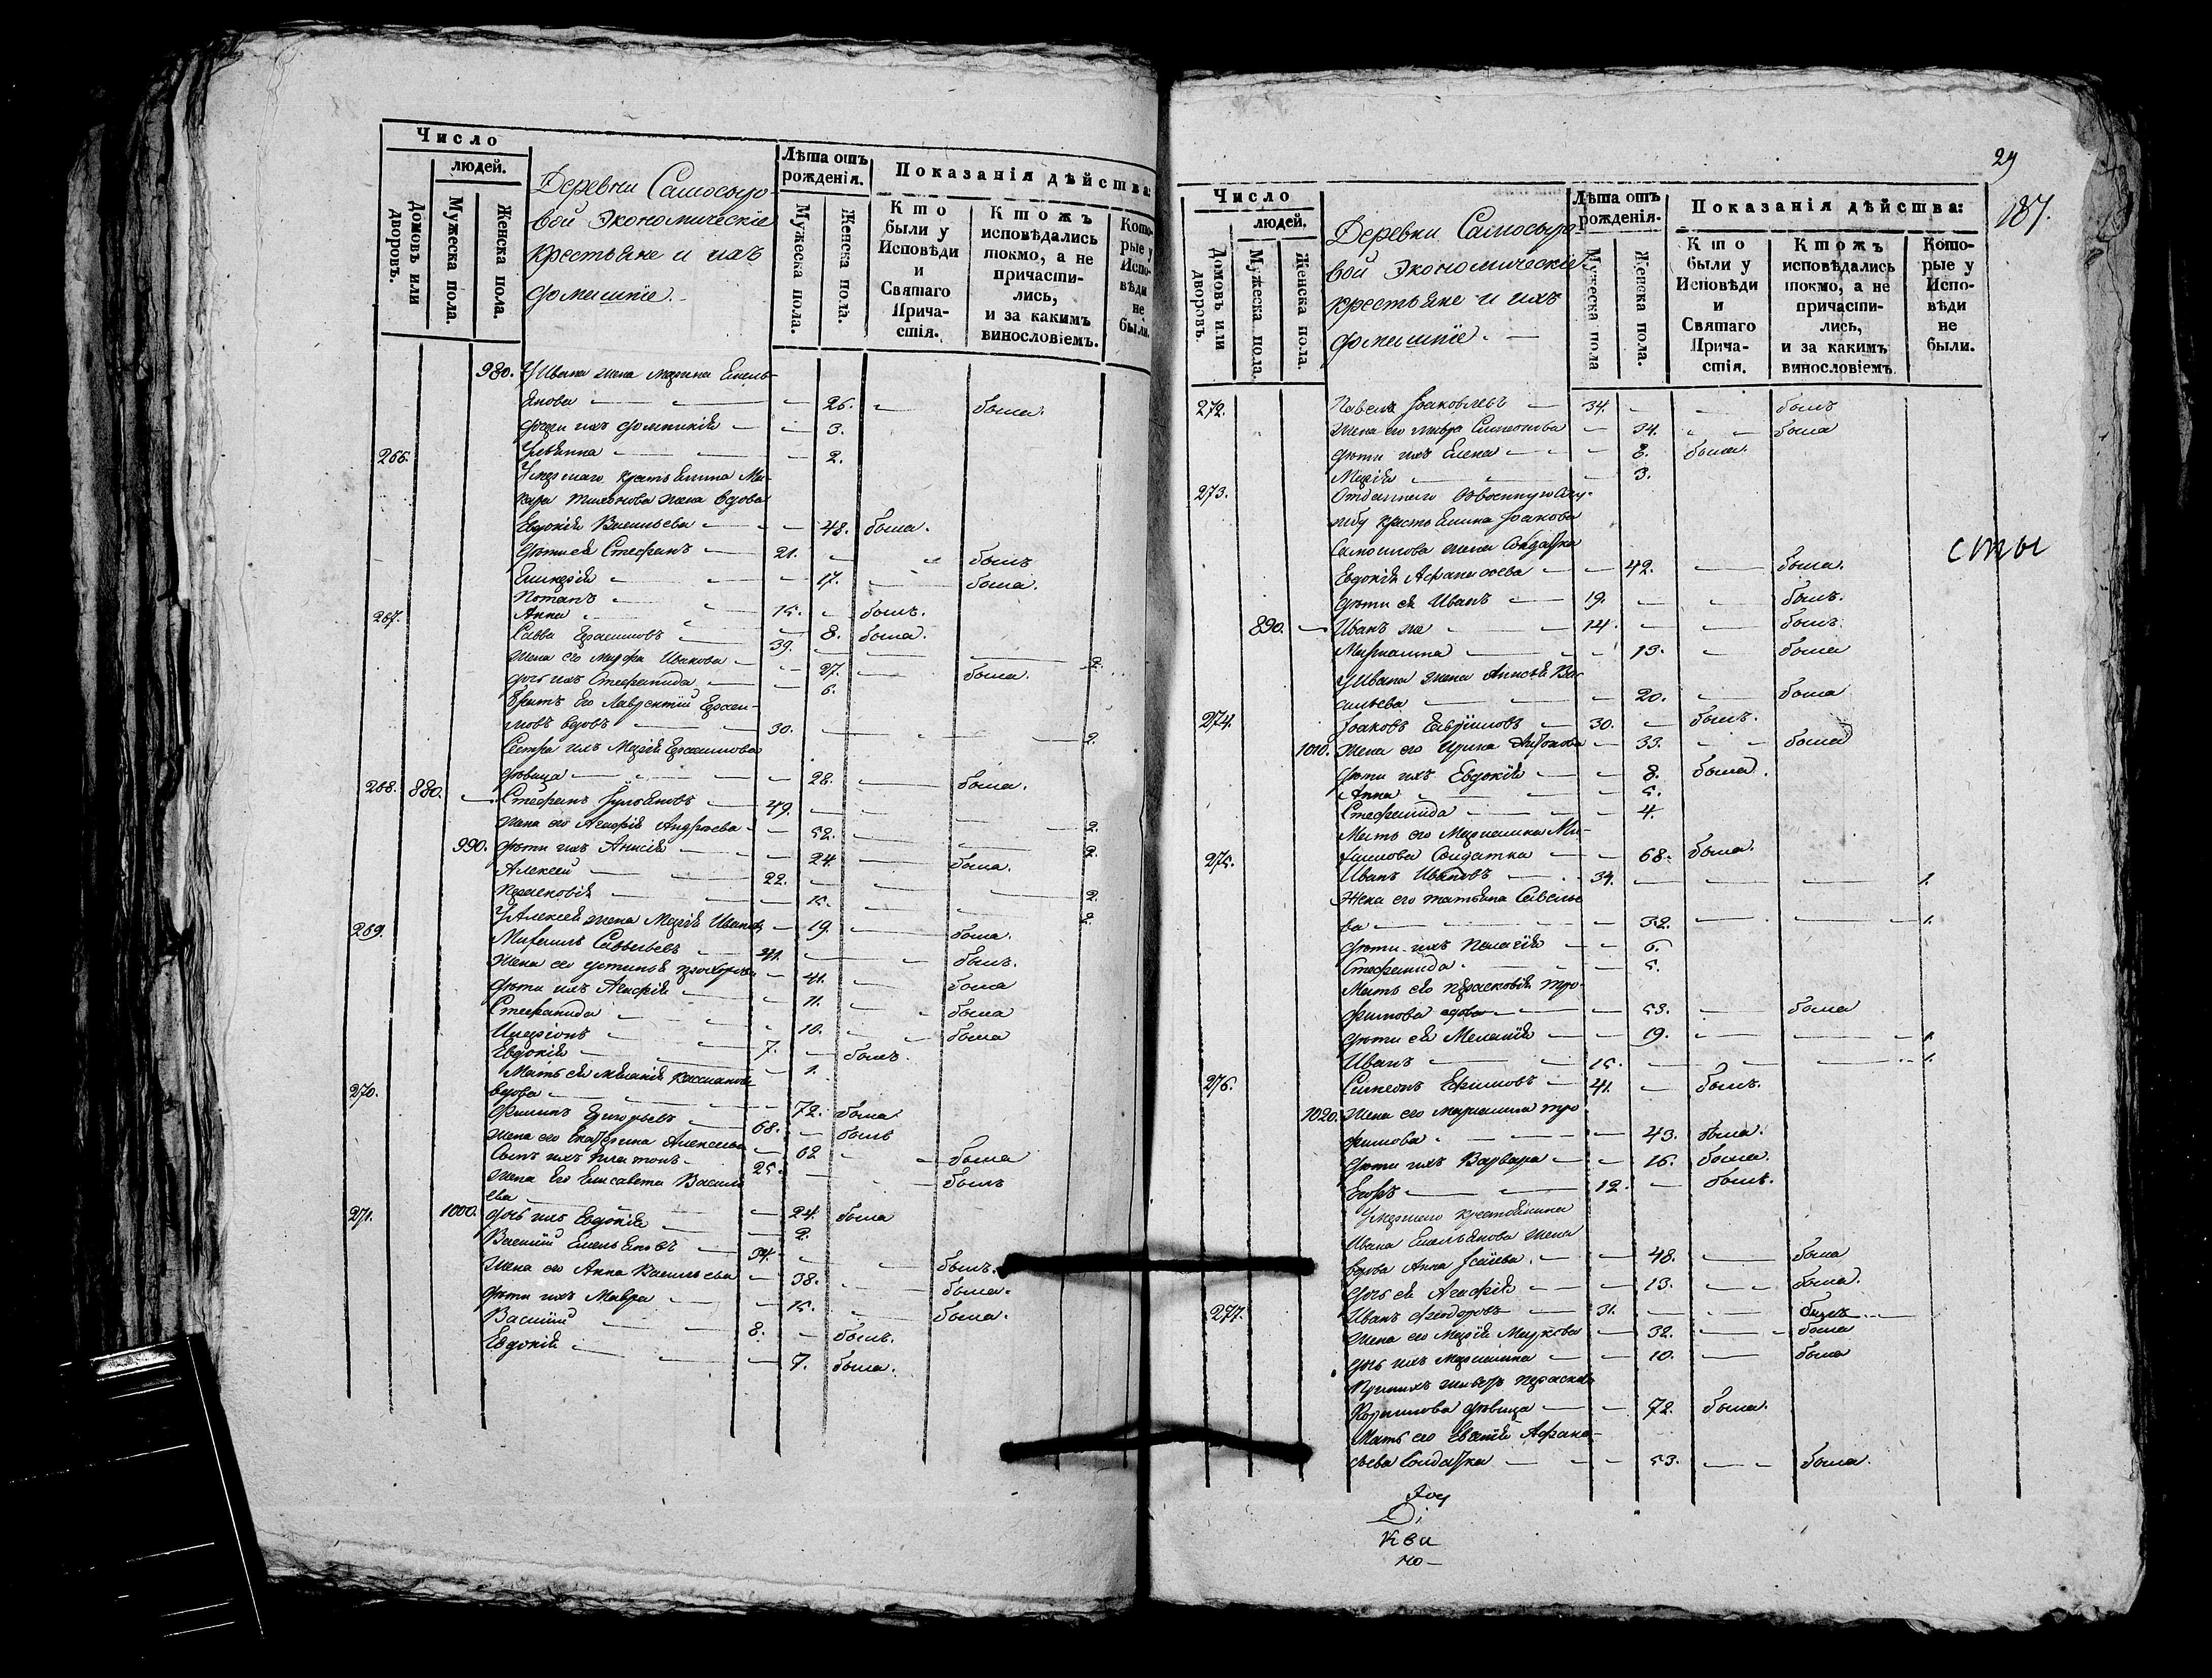 Число
людей.
Домовъ или дворовъ.
Мужеска пола.
Женска пола.
Деревни Самосыро-
вой Экономическіе
крестьяне и ихъ
домашніе.
Лѣта отъ рожденія.
Мужеска пола.
Женска пола.
Показанія дѣйства:
Кто были у Исповѣди и Святаго Причастія.
Ктожъ исповѣдались токмо, а не причастились, и за какимъ винословіемъ.
Которые у Исповѣди не были.
980. У Ивана жена Марина Емель-
янова — 26. — была.
дочери ихъ — 3.
Ульянна — 2.
266. Умершаго крестьянина Ма-
кара Тихонова жена вдова
Евдокія Васильева — 48. была.
дѣти ея Стефанъ — 21. — былъ
— 17. — была.
Потапъ — 15. — былъ.
Анна — 8. была.
267. Савва Герасимовъ — 39. — 2.
жена его Марфа Иванова — 27. — была.
дочь ихъ Стефанида — 6.
Братъ его Лаврентій Гераси-
мовъ вдовъ — 30. — 2.
Сестра ихъ Марія Герасимова
дѣвица — 28. — была.
268. 880. — Стефанъ — 49. — 2.
жена его Агафія Андреева — 52. — 2.
990. дѣти ихъ Анисія — 24. — была.
Алексей — 22. — 2.
Парасковія — 15. — 2.
У Алексея жена Марія Иванова — 19. — была.
269. Михаилъ Савельевъ — 41. — былъ.
жена его — 41. — была
дѣти ихъ Агафія — 11. — была
Стефанида — 10. — была
Иларіонъ — 7. — былъ.
Евдокія — 1.
Мать ея Меланія Кассианова
вдова — 72. была
270. Филипъ Григорьевъ — 68. — былъ
жена его Екатерина Алексеева — 62 — была
Сынъ ихъ Платонъ — 25. — былъ
жена его Елисавета Василь-
ева — 24. была
1000. дочь ихъ Евдокія — 2.
271. Василій Емельяновъ — 34. — былъ.
Жена его Анна Васильева — 38. — была.
дѣти ихъ Мавра — 15. — была.
Василій — 8. — былъ.
Евдокія — 7. была.
29
187.
Число
людей.
Домовъ или дворовъ.
Мужеска пола.
Женска пола
Деревни Самосыро-
вой Экономическіе
крестьяне и ихъ
домашніе. —
Лѣта отъ рожденія.
Мужеска пола
Женска пола.
Показанія дѣйства:
Кто были у Исповѣди и Святаго Причастія.
Ктожъ исповѣдались токмо, а не причастились, и за какимъ винословіемъ
Которые у Исповѣди не были.
272. Павелъ Іаковлевъ — 34. — былъ
жена его Мавра Симеонова — 34. — была
дѣти ихъ Елена — 8. была.
Марія — 3.
273. Отданнаго въ военную слу-
жбу крестьянина Іакова
Самоилова жена Солдатка
Евдокія Афанасьева — 42. — была.
дѣти ея Иванъ — 19. — былъ.
890. — Иванъ же — 14. — былъ.
Маріамна — 13. — была
У Ивана жена Анисья Ва-
сильева — 20. — была
274. Іаковъ Гавріиловъ — 30. — былъ.
1010. Жена его Ирина Антонова — 33. — была
дѣти ихъ Евдокія — 8. была.
Анна — 5.
Стефанида — 4.
Мать его Маріамна Ми-
хаилова Солдатка — 68. была.
275. Иванъ Ивановъ — 34. — 1.
Жена его Татьяна Савелье-
ва — 32. — 1.
дѣти ихъ Пелагія — 6.
Стефанида — 5.
Мать его Парасковія Тро-
фимова вдова — 53. — была
дѣти ея Меланія — 19. — 1.
Иванъ — 15. — 1.
276. Симеонъ Ефимовъ — 41. — былъ.
1020. Жена его Маріамна Тро-
фимова — 43. была.
Дѣти ихъ Варвара — 16. была.
Егоръ — 12. — былъ.
Умершаго крестьянина
Ивана Емельянова жена
вдова Анна — 48. — была
дочь ея Агафія — 13. — была.
277. Иванъ Феодоровъ — 31. — былъ
жена его Марія — 32. — была
дочь ихъ Маріамна — 10. — была
При нихъ живетъ Парасковія
дѣвица — 72. была.
Мать его Афана-
сьева Солдатка — 53. — была.
сты
Ді
Ква
но—